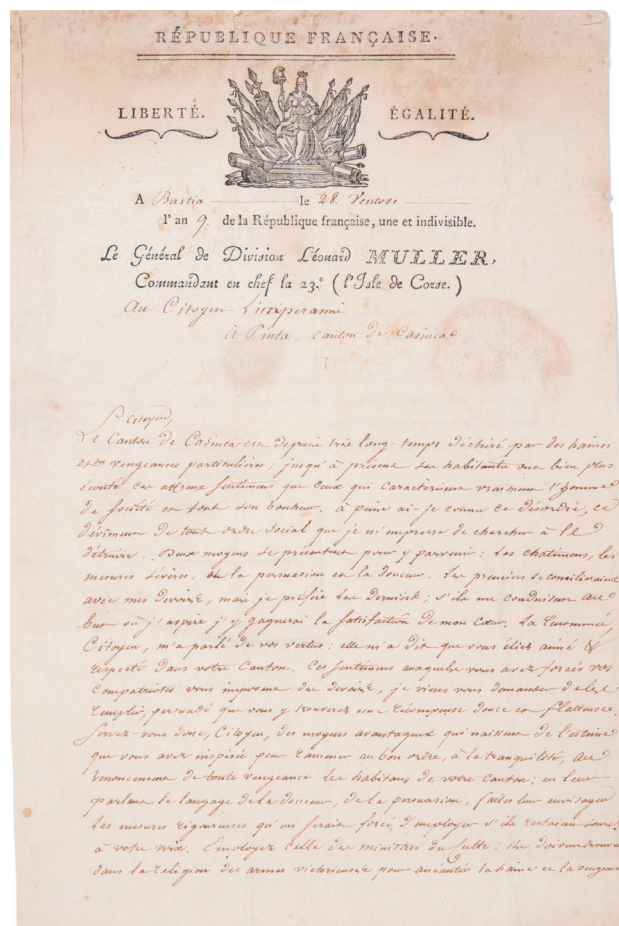 RÉPUBLIQUE FRANÇAISE.
LIBERTÉ. ÉGALITÉ.
A Bastia le 28. Ventose
l'an 9. de la République française, une et indivisible.
Le Général de Division Léonard MULLER,
Commandant en chef la 23.e (l'Isle de Corse.)
Au Citoyen
à Pinta, canton de Casinca
Citoyen,
Le Canton de Casinca est depuis très long-temps déchiré par des haines
et des vengeances particulières; jusqu'à présent ses habitants ont bien plus
écouté ces affreux sentimens que ceux qui caractérisent vraiment l'homme
de société et font son bonheur. à peine ai-je connu ce désordre, ce
de tout ordre social que je m'empresse de chercher à le
détruire. Deux moyens se présentent pour y parvenir: Les châtimens, les
mesures sévères, ou la persuasion et la douceur. Les premiers se concilieraient
avec mes devoirs, mais je préfère les derniers; s'ils me conduisent au
but où j'aspire j'y gagnerai la satisfaction de mon cœur. La renommée,
Citoyen, m'a parlé de vos vertus: elle m'a dit que vous étiez aimé &
respecté dans votre Canton. Ces sentimens auxquels vous avez forcés vos
compatriotes vous imposent des devoirs, je viens vous demander de les
remplir, persuadé que vous y trouverez une récompense douce et flatteuse.
Servez-vous donc, Citoyen, des moyens avantageux qui naissent de l'estime
que vous avez inspirée pour ramener au bon ordre, à la tranquilité, au
renoncement de toute vengeance les habitans de votre Canton; en leur
parlant le langage de la douceur, de la persuasion, faites leur envisager
les mesures rigoureuses qu'on serait forcé d'employer s'ils restaient sourds
à votre voix. Employez celle des ministres du Culte: ils doivent trouver
dans la religion des armes victorieuses pour anéantir la haine et la vengeance